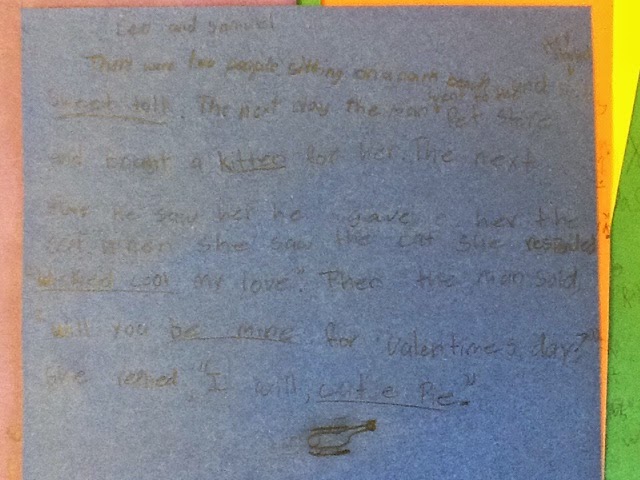 Leo and Samuel
There were two people sitting on a park bench
Sweet talk. The next day the man went to the Pet Store
and bought a kitten for her. The next
time he saw her he gave her the
cat when she saw the cat she responded
cool my love". Then the man said,
"will you be mine for valentines day?"
She replied, "I will, write Me."